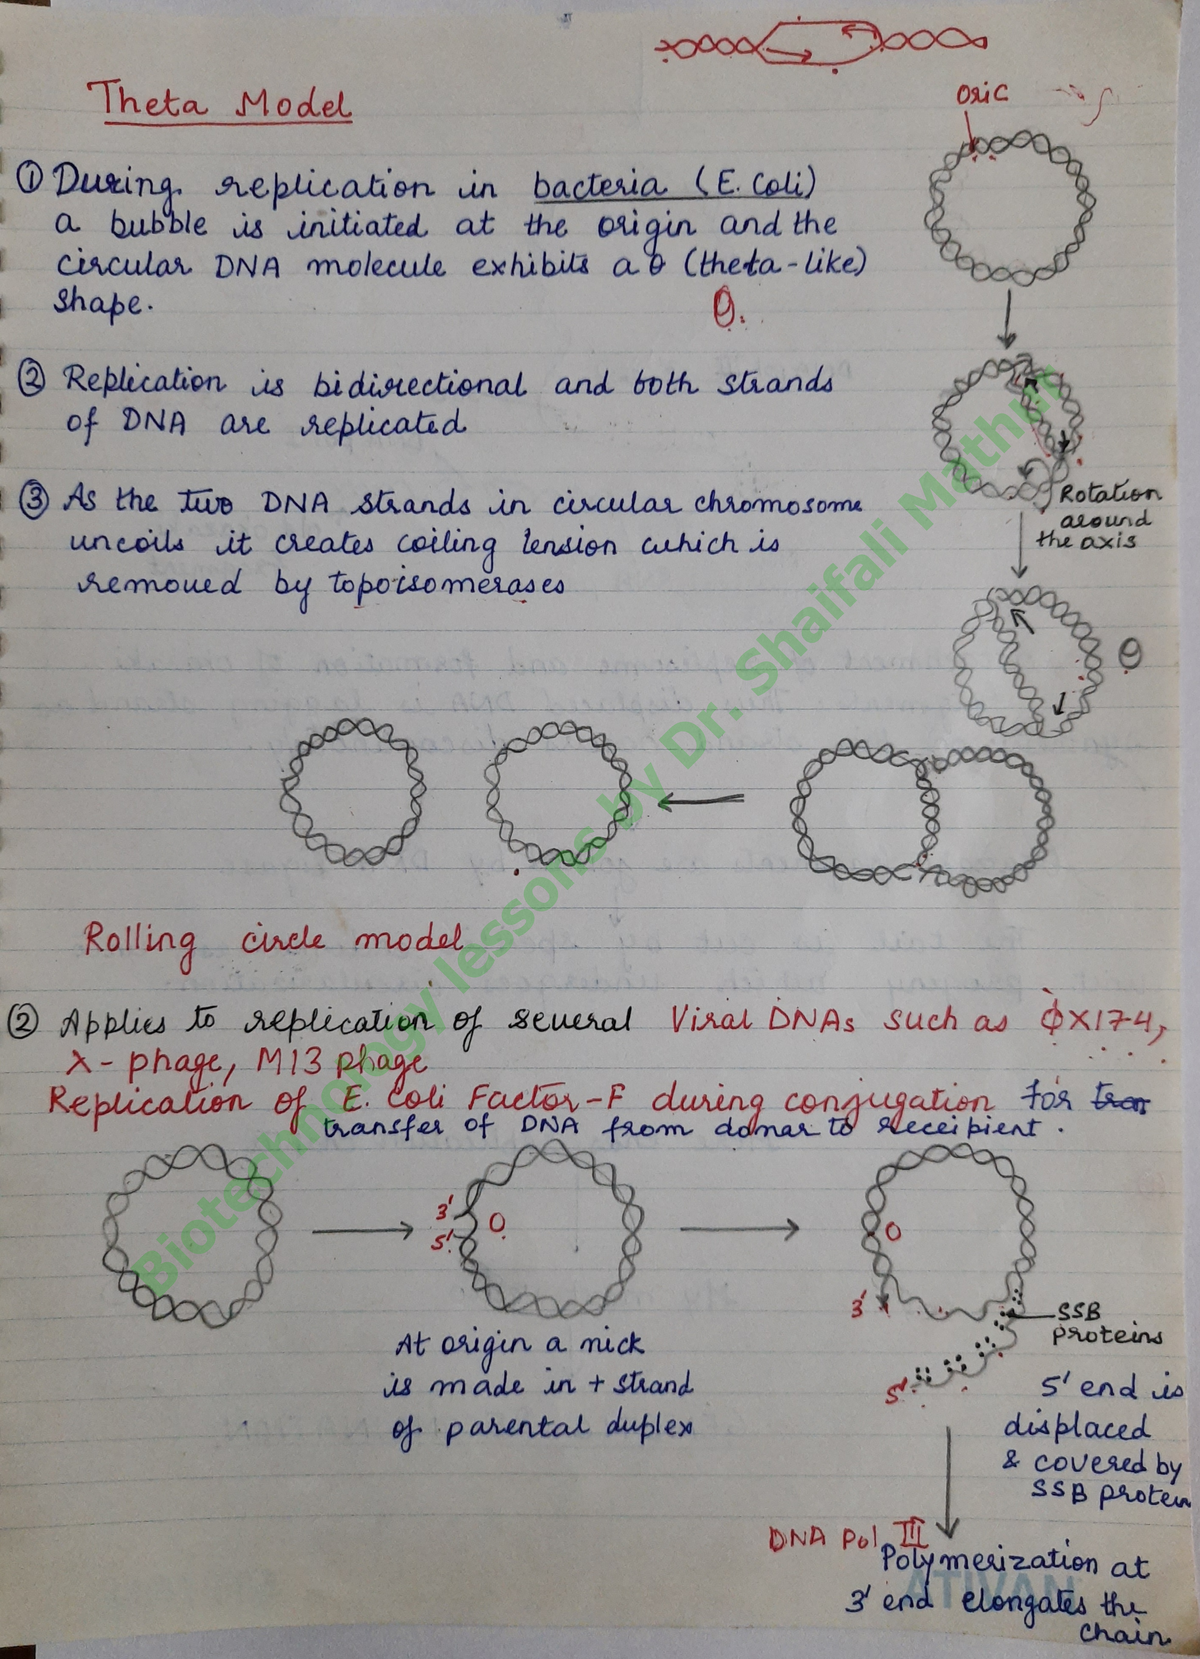 Theta Model
oric
① During replication in bacteria (E. Coli)
a bubble is initiated at the origin and the
circular DNA molecule exhibits a θ (theta-like)
shape.
θ.
② Replication is bidirectional and both strands
of DNA are replicated
③ As the two DNA strands in circular chromosome
uncoils it creates coiling tension which is
removed by topoisomerases
Rotation
around
the axis
θ
Rolling circle model
② Applies to replication of several Viral DNAs such as ϕX174,
λ-phage, M13 phage
Replication of E. Coli Factor-F during conjugation for tran
transfer of DNA from donar to receipient.
3'
O
5'
At origin a nick
is made in + strand
of parental duplex
O
3'
5'
SSB
proteins
5' end is
displaced
& covered by
SSB protein
DNA Pol III
Polymerization at
3' end elongates the
chain
Biotechnology lessons by Dr. Shaifali Mathur